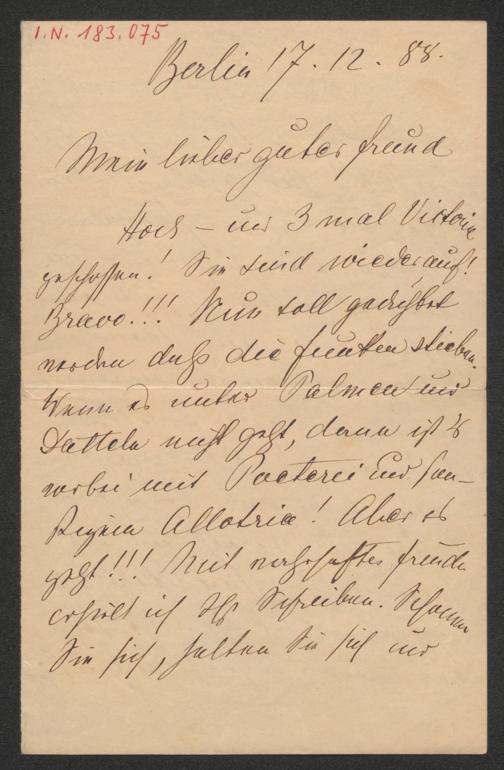 I.N. 183.075
Berlin 17. 12. 88.
Mein lieber guter Freund
Hoch – und 3 mal Victoria
geschossen! Sie sind wieder auf!
Bravo!!! Nun soll gedichtet
werden daß die Funken stieben.
Wenn es unter Palmen und
Datteln nicht geht, dann ist es
vorbei mit Poeterei und son-
stigem Allotria! Aber es
geht!!! Mit wahrhafter Freude
erhielt ich Ihr Schreiben. Schonen
Sie sich, halten Sie sich und